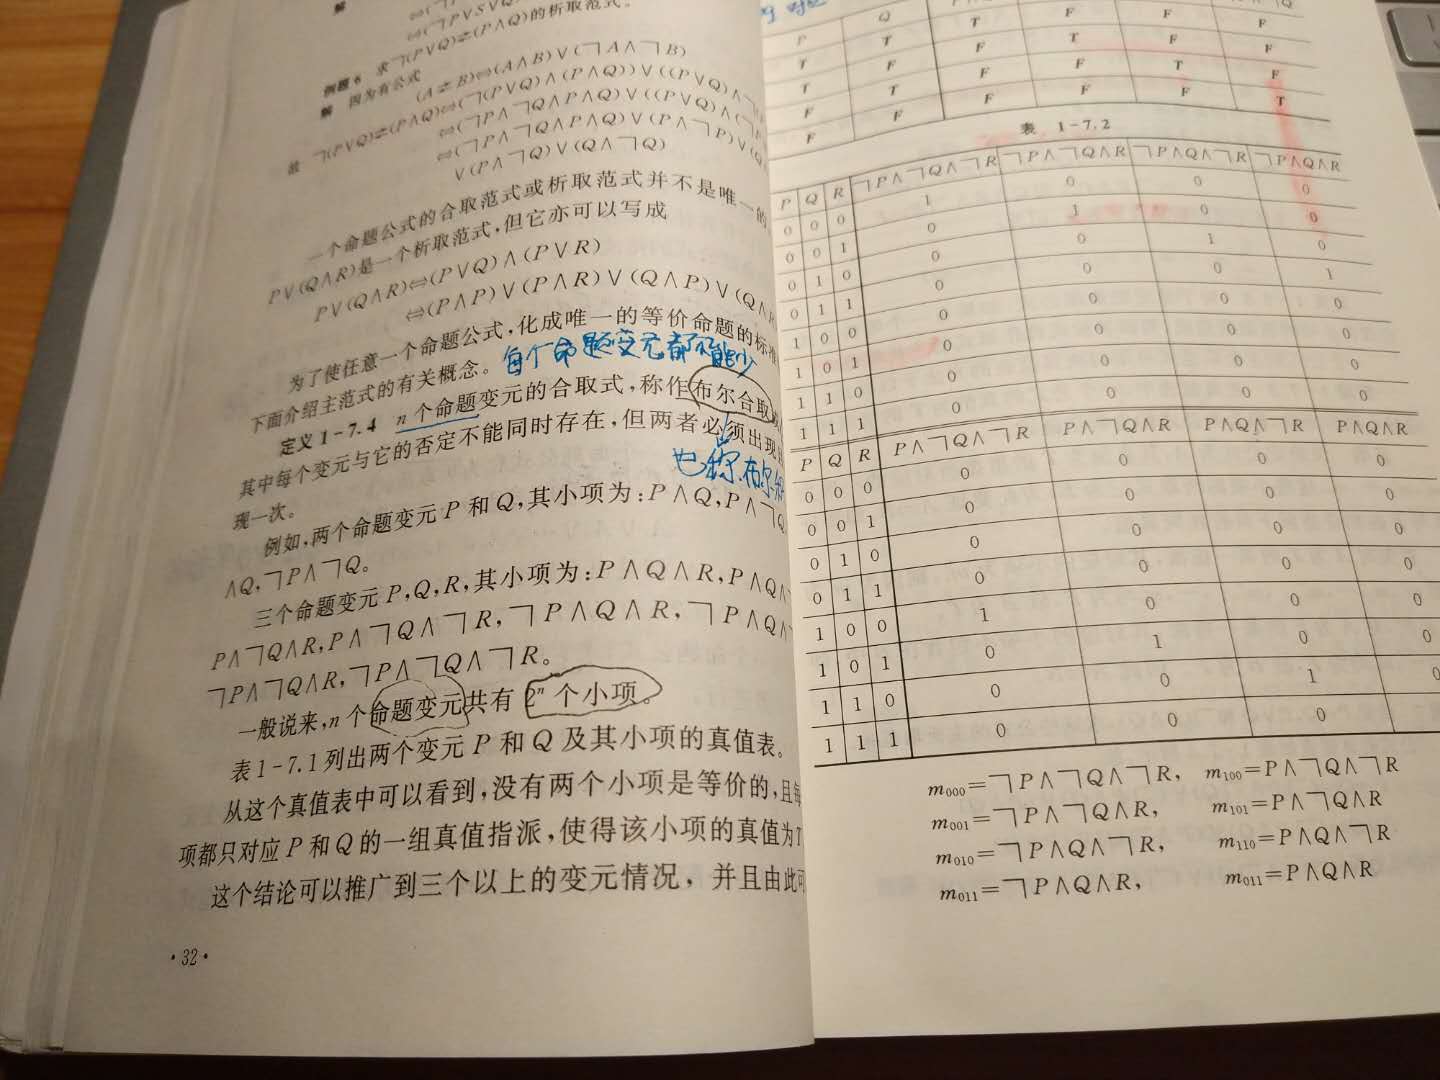 解
⇔(┐P∨S∨Q
例题6 求┐(P∨Q)⇄(P∧Q)的析取范式。
解 因为有公式
(A⇄B)⇔(A∧B)∨(┐A∧┐B)
故 ┐(P∨Q)⇄(P∧Q)⇔(┐(P∨Q)∧(P∧Q))∨((P∨Q)∧
⇔(┐P∧┐Q∧P∧Q)∨((P∨Q)∧(┐P
⇔(┐P∧┐Q∧P∧Q)∨(P∧┐P)∨(Q
∨(P∧┐Q)∨(Q∧┐Q)
一个命题公式的合取范式或析取范式并不是唯一的
P∨(Q∧R)是一个析取范式,但它亦可以写成
P∨(Q∧R)⇔(P∨Q)∧(P∨R)
⇔(P∧P)∨(P∧R)∨(Q∧P)∨(Q∧R
为了使任意一个命题公式,化成唯一的等价命题的标准
下面介绍主范式的有关概念。 每个命题变元都不能少
定义1-7.4 n个命题变元的合取式,称作布尔合取
其中每个变元与它的否定不能同时存在,但两者必须出现
现一次。 也称
例如,两个命题变元P和Q,其小项为:P∧Q,P∧┐Q
∧Q,┐P∧┐Q。
三个命题变元P,Q,R,其小项为:P∧Q∧R,P∧Q∧
P∧┐Q∧R,P∧┐Q∧┐R,┐P∧Q∧R,┐P∧Q∧
┐P∧┐Q∧R,┐P∧┐Q∧┐R。
一般说来,n个命题变元共有2ⁿ个小项。
表1-7.1列出两个变元P和Q及其小项的真值表。
从这个真值表中可以看到,没有两个小项是等价的,且每
项都只对应P和Q的一组真值指派,使得该小项的真值为T
这个结论可以推广到三个以上的变元情况,并且由此可
·32·
对应
P Q
T T T F F F
T F F T F F
F T F F T F
F F F F F T
表 1-7.2
P Q R ┐P∧┐Q∧┐R ┐P∧┐Q∧R ┐P∧Q∧┐R ┐P∧Q∧R
0 0 0 1 0 0 0
0 0 1 0 1 0 0
0 1 0 0 0 1 0
0 1 1 0 0 0 1
1 0 0 0 0 0 0
1 0 1 0 0 0 0
1 1 0 0 0 0 0
1 1 1 0 0 0 0
P Q R P∧┐Q∧┐R P∧┐Q∧R P∧Q∧┐R P∧Q∧R
0 0 0 0 0 0 0
0 0 1 0 0 0 0
0 1 0 0 0 0 0
0 1 1 0 0 0 0
1 0 0 1 0 0 0
1 0 1 0 1 0 0
1 1 0 0 0 1 0
1 1 1 0 0 0
m₀₀₀=┐P∧┐Q∧┐R, m₁₀₀=P∧┐Q∧┐R
m₀₀₁=┐P∧┐Q∧R, m₁₀₁=P∧┐Q∧R
m₀₁₀=┐P∧Q∧┐R, m₁₁₀=P∧Q∧┐R
m₀₁₁=┐P∧Q∧R, m₀₁₁=P∧Q∧R